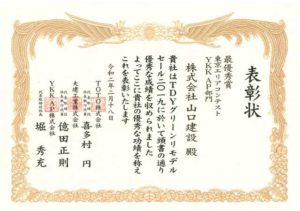 表彰状
最優秀賞
東京エリアコンテスト
YKK AP部門
株式会社 山口建設 殿
貴社はTDYグリーンリモデル
セール二〇一九に於いて頭書の通り
優秀な成績を収められました
よってここに貴社の優秀な功績を称え
これを表彰いたします
令和二年二月十八日
TOTO株式会社
喜多村 円
大建工業株式会社
億田 正則
YKK AP株式会社
堀 秀充